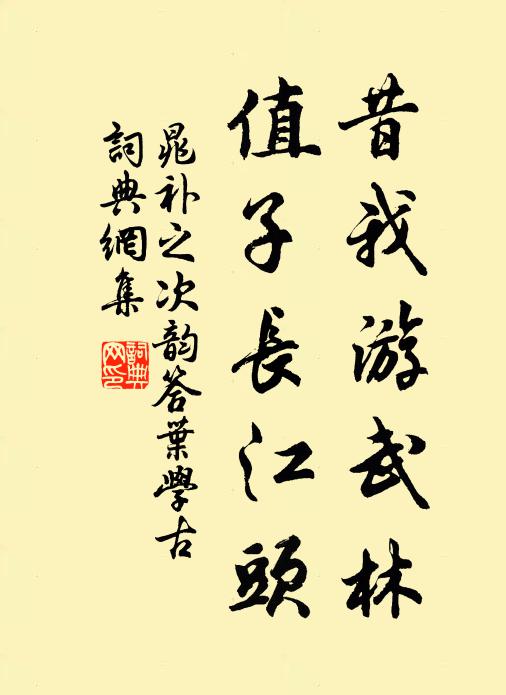 昔我游武林
值子長江頭
晁补之次韵答葉學古
詞典網集
詞典网印